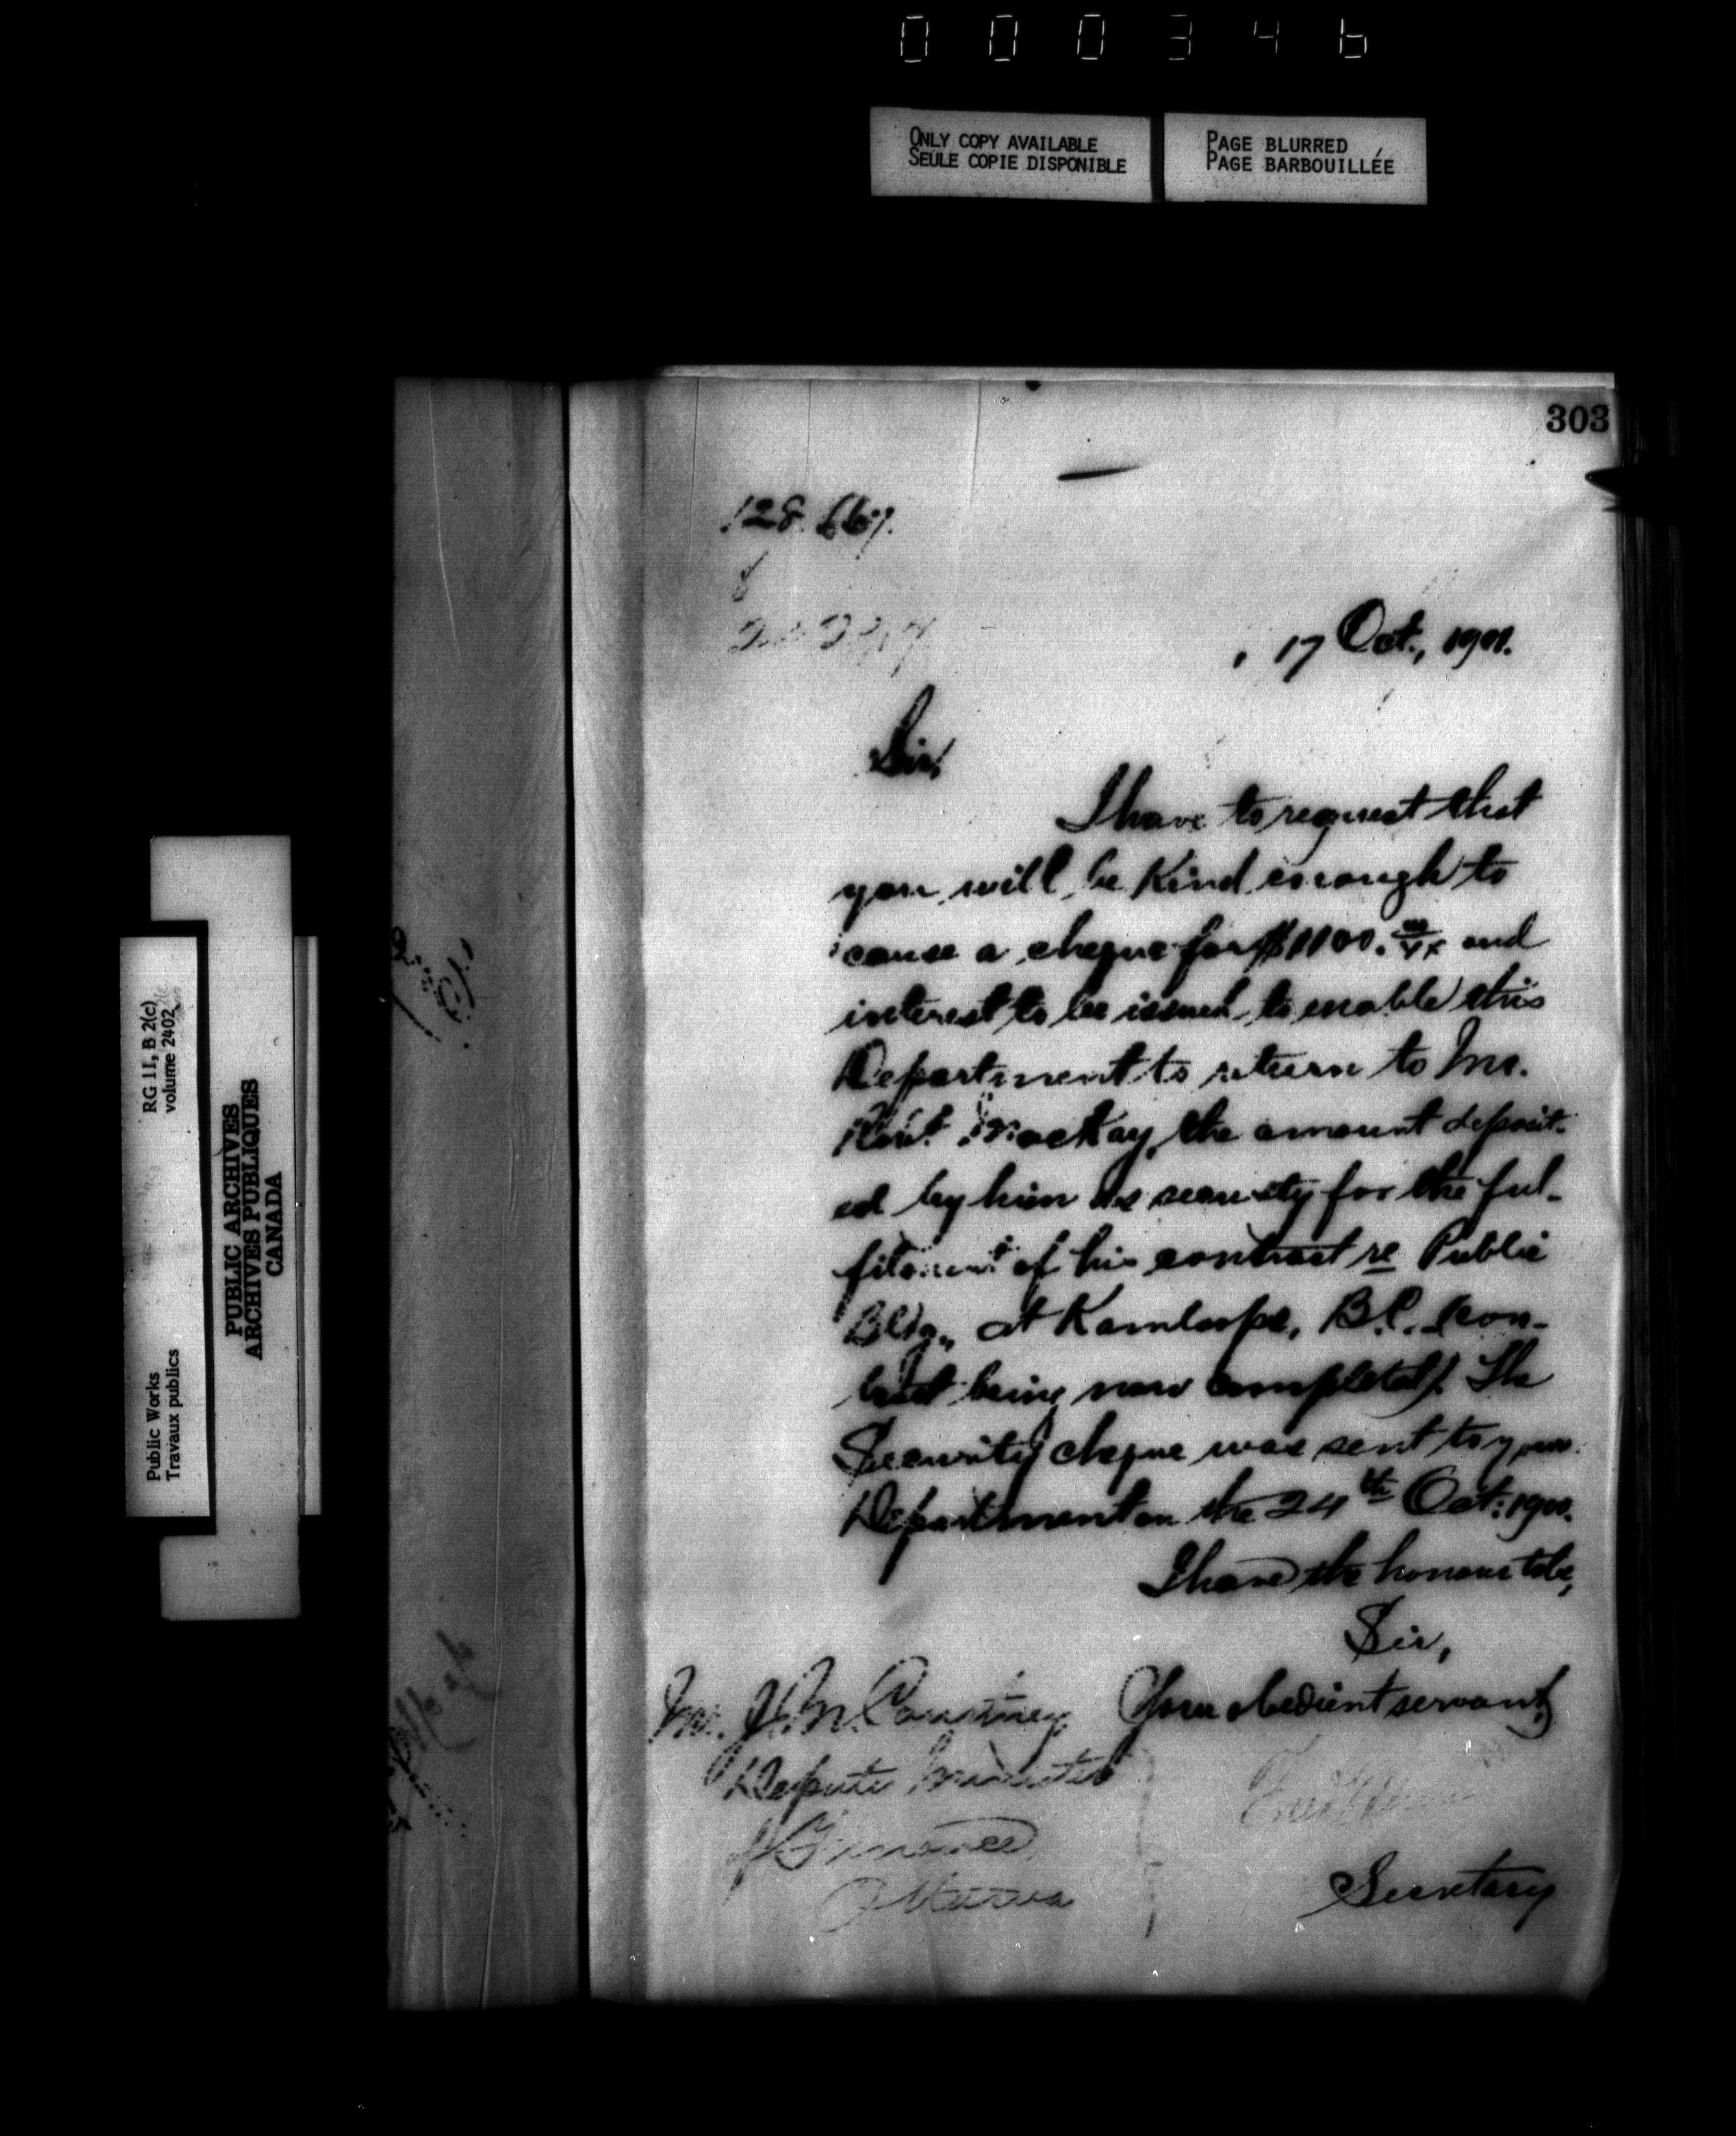 000346
ONLY COPY AVAILABLE
SEULE COPIE DISPONIBLE
PAGE BLURRED
PAGE BARBOUILLÉE
RG 11, B 2(c)
volume 2402
Public Works
Travaux publics
PUBLIC ARCHIVES
ARCHIVES PUBLIQUES
CANADA
303
17 Oct., 1901.
Sir,
I have to request that
you will be kind enough to
cause a cheque for $1100. and
interest to be issued to enable this
Department to return to Mr.
Robt. MacKay, the amount deposit-
ed by him as security for the ful-
filment of his contract re Public
Bldg., at Kamloops, B.C. (con-
tract being now completed). The
Security cheque was sent to your
Department on the 24th Oct: 1900.
I have the honour to be,
Sir,
Your obedient servant,
Mr. J. M. Courtney
Deputy Minister
of Finance
Ottawa
Secretary